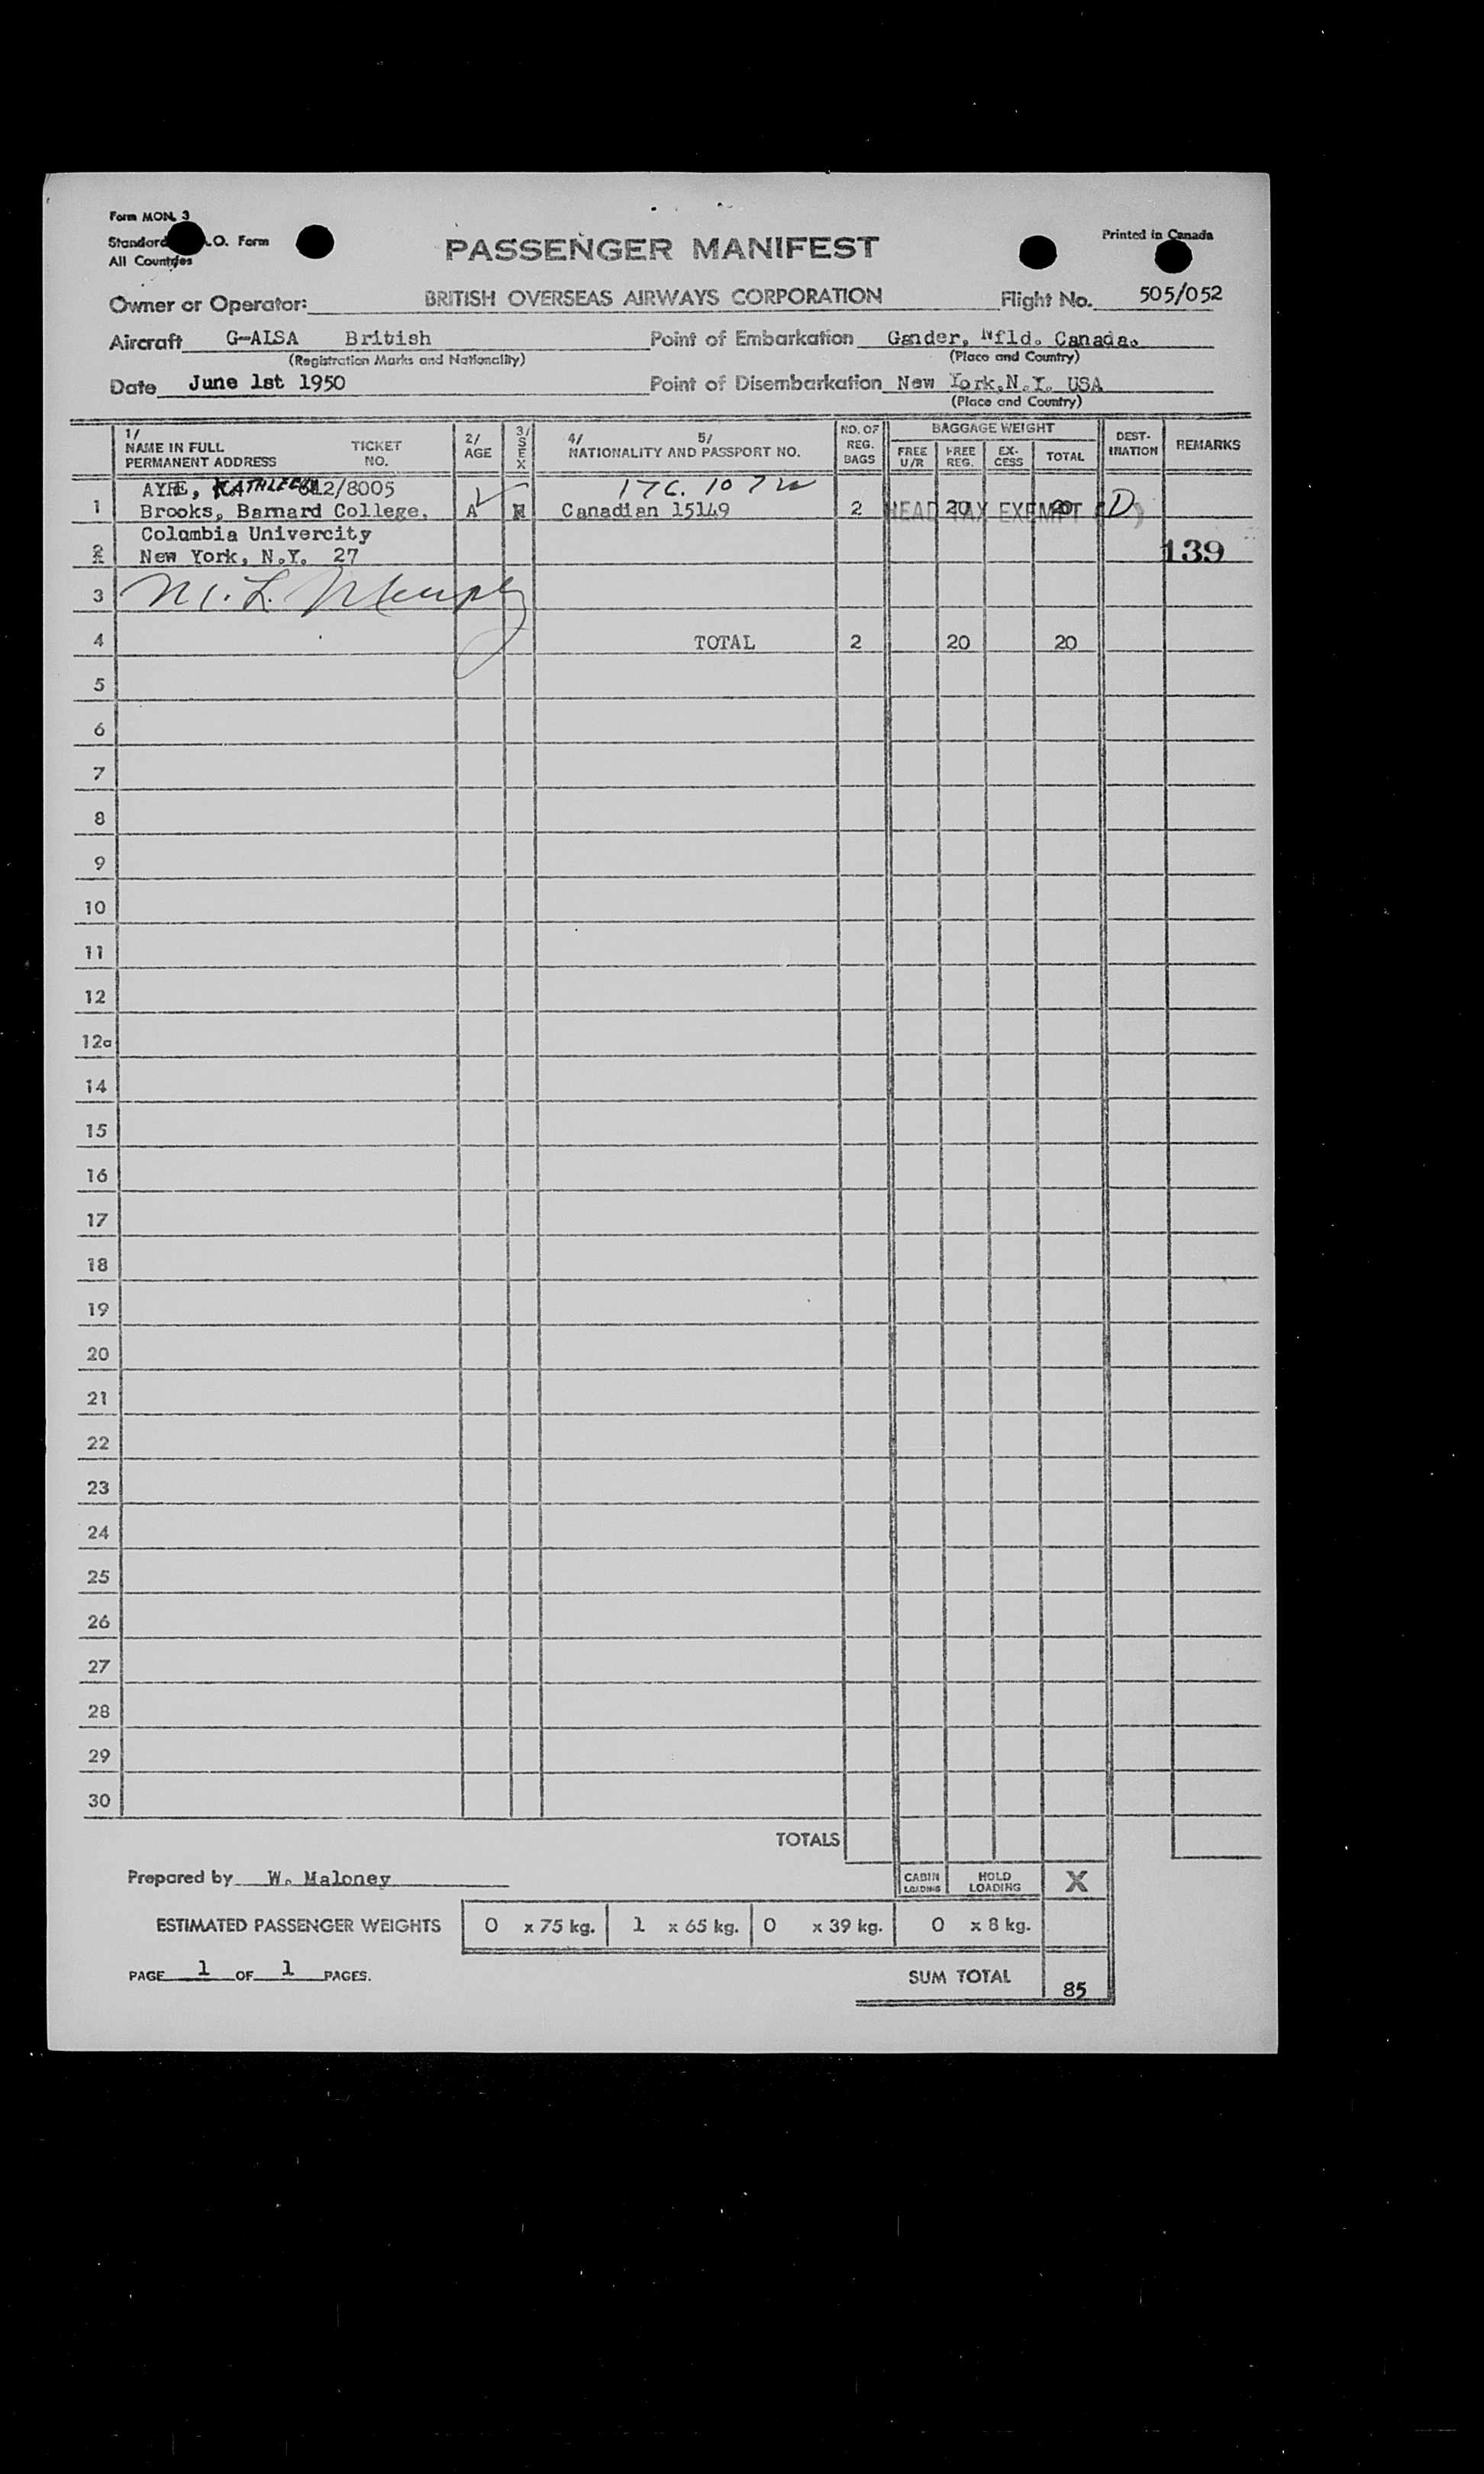 Form MON. 3
Standard .O. Form
All Countries
PASSENGER MANIFEST
Printed in Canada
Owner or Operator: BRITISH OVERSEAS AIRWAYS CORPORATION Flight No. 505/052
Aircraft G-ALSA British Point of Embarkation Gander, Nfld. Canada.
(Registration Marks and Nationality) (Place and Country)
Date June 1st 1950 Point of Disembarkation New York, N.Y. USA
(Place and Country)
1/ NAME IN FULL PERMANENT ADDRESS TICKET NO. 2/ AGE 3/ SEX 4/ 5/ NATIONALITY AND PASSPORT NO. NO. OF REG. BAGS BAGGAGE WEIGHT FREE U/R FREE REG. EX-CESS TOTAL DEST-INATION REMARKS
AYRE, KATHLEEN 612/8005 176. 107
1 Brooks, Barnard College, A Canadian 15149 2 20 HEAD TAX EXEMPT 20 (D)
Colombia Univercity
2 New York, N.Y. 27 139
3 M. L.
4 TOTAL 2 20 20
5
6
7
8
9
10
11
12
12a
14
15
16
17
18
19
20
21
22
23
24
25
26
27
28
29
30
TOTALS
Prepared by W. Maloney CABIN LOADING HOLD LOADING X
ESTIMATED PASSENGER WEIGHTS 0 x 75 kg. 1 x 65 kg. 0 x 39 kg. 0 x 8 kg.
PAGE 1 OF 1 PAGES. SUM TOTAL 85